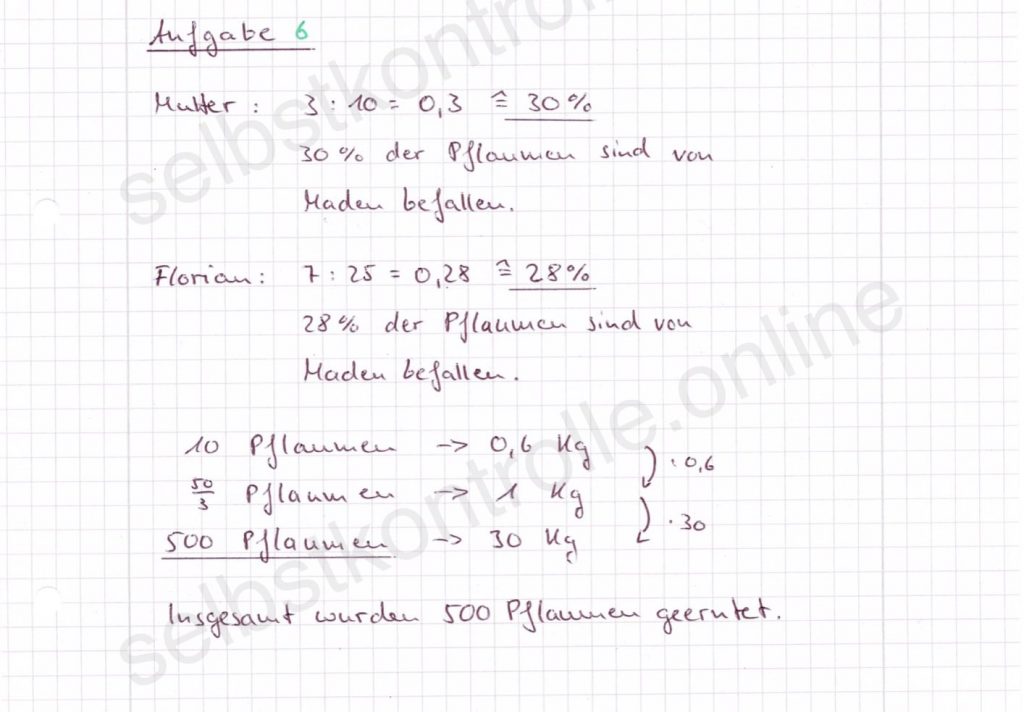 Aufgabe 6
Mutter: 3 : 10 = 0,3 ≙ 30 %
30 % der Pflaumen sind von
Maden befallen.
Florian: 7 : 25 = 0,28 ≙ 28 %
28 % der Pflaumen sind von
Maden befallen.
10 Pflaumen -> 0,6 Kg
: 0,6
50/3 Pflaumen -> 1 Kg
· 30
500 Pflaumen -> 30 Kg
Insgesamt wurden 500 Pflaumen geerntet.
selbstkontrolle.online
selbstkontrolle.online